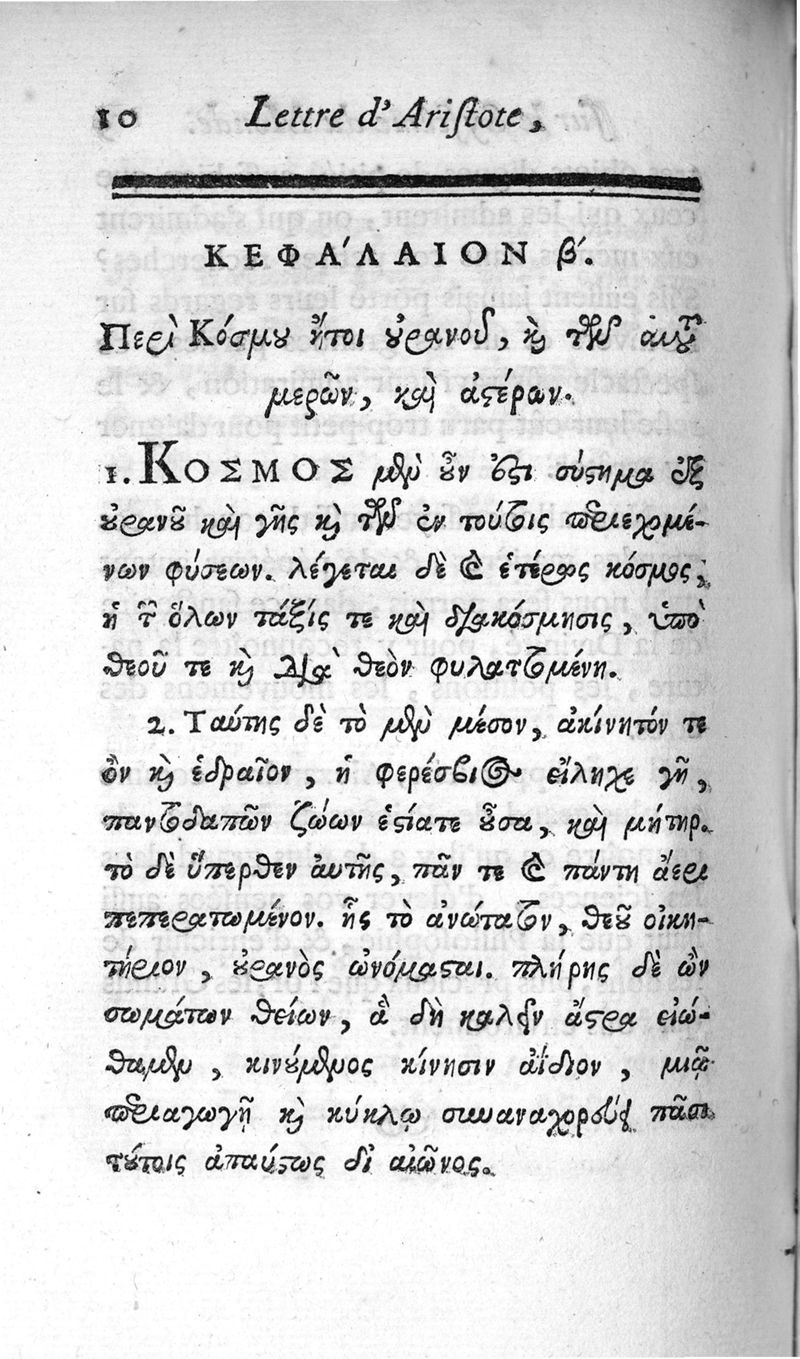 10 Lettre d'Aristote,
ΚΕΦΑ'ΛΑΙΟΝ β'.
Περὶ Κόσμου ἤτοι οὐρανοῦ, καὶ τῶν αὐτοῦ
μερῶν, καὶ ἀστέρων.
1. ΚΟΣΜΟΣ μὲν οὖν ἐστι σύστημα ἐξ
οὐρανοῦ καὶ γῆς καὶ τῶν ἐν τούτοις περιεχομέ-
νων φύσεων. λέγεται δὲ καὶ ἑτέρως κόσμος,
ἡ τῶν ὅλων τάξις τε καὶ διακόσμησις, ὑπὸ
θεοῦ τε καὶ διὰ θεὸν φυλαττομένη.
2. Ταύτης δὲ τὸ μὲν μέσον, ἀκίνητόν τε
ὂν καὶ ἑδραῖον, ἡ φερέσβιος εἴληχε γῆ,
παντοδαπῶν ζώων ἑστίατε οὖσα, καὶ μήτηρ.
τὸ δὲ ὕπερθεν αὐτῆς, πᾶν τε καὶ πάντη ἀέρι
πεπερατωμένον. ἧς τὸ ἀνώτατον, θεοῦ οἰκη-
τήριον, οὐρανὸς ὠνόμασται. πλήρης δὲ ὢν
σωμάτων θείων, ἃ δὴ καλεῖν ἄστρα εἰώ-
θαμεν, κινούμενος κίνησιν ἀΐδιον, μιᾷ
περιαγωγῇ καὶ κύκλῳ συναναχορεύει πᾶσι
τούτοις ἀπαύστως δι' αἰῶνος.